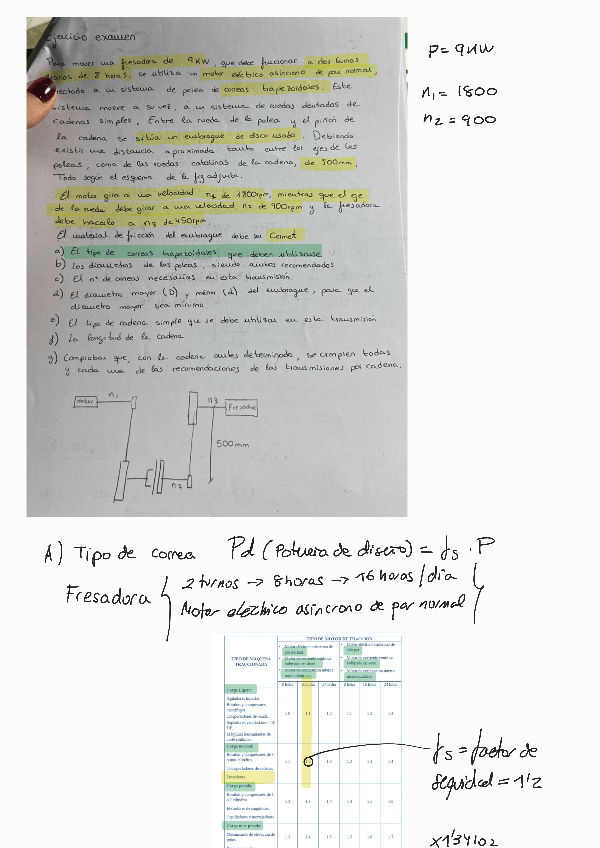 Ejercicio examen
Para mover una fresadora de 9KW, que debe funcionar a dos turnos
diarios de 8 horas, se utiliza un motor eléctrico asíncrono de par normal,
conectado a un sistema de polea de correas trapezoidales. Este
sistema mueve a su vez, a un sistema de ruedas dentadas de
cadenas simples. Entre la rueda de la polea y el piñón de
la cadena se sitúa un embrague de disco usado. Debiendo
existir una distancia aproximada tanto entre los ejes de las
poleas, como de las ruedas catalinas de la cadena, de 500mm.
Todo según el esquema de la fig adjunta.
El motor gira a una velocidad n1 de 1800rpm, mientras que el eje
de la rueda debe girar a una velocidad n2 de 900rpm y la fresadora
debe hacerlo a n3 de 450rpm.
El material de fricción del embrague debe ser Cermet
a) El tipo de correas trapezoidales que deben utilizarse
b) Los diámetros de las poleas, siendo ambos recomendados
c) El nº de correas necesarias en esta transmisión
d) El diámetro mayor (D) y menor (d) del embrague, para que el
diámetro mayor sea mínimo
e) El tipo de cadena simple que se debe utilizar en esta transmisión
f) La longitud de la cadena
g) Comprobar que, con la cadena antes determinada, se cumplen todas
y cada una de las recomendaciones de las transmisiones por cadena.
motor
n1
n3
Fresadora
500mm
n2
P= 9KW
n1 = 1800
n2 = 900
A) Tipo de correa Pd (Potencia de diseño) = fs . P
Fresadora
2 turnos → 8 horas → 16 horas / día
Motor eléctrico asíncrono de par normal
TIPO DE MAQUINA TRACCIONADA
TIPO DE MOTOR DE TRACCION
8 h/día 16 h/día 24 h/día 8 h/día 16 h/día 24 h/día
Carga Ligera
Carga normal
Fresadoras
Carga pesada
Carga muy pesada
fs = factor de
seguridad = 1'2
x1'34102